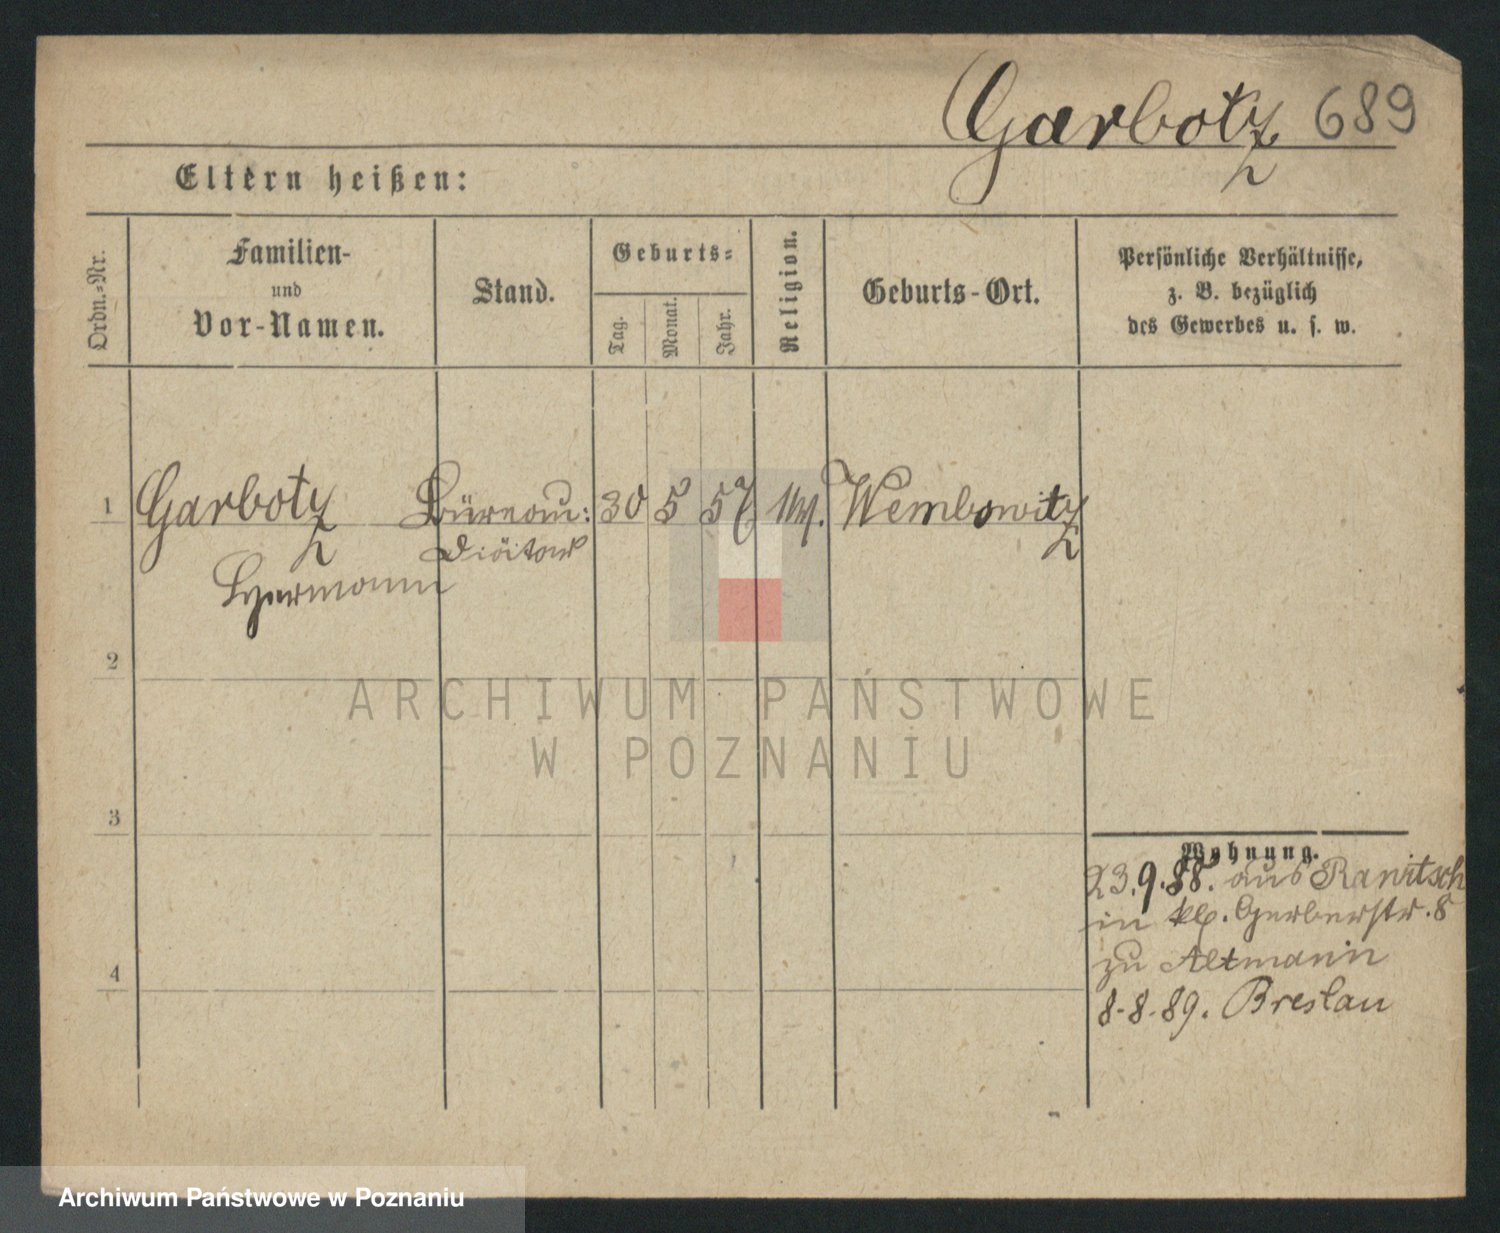 Garbotz 689
Eltern heißen:
Ordn.-Nr.
Familien-
und
Vor-Namen.
Stand.
Geburts-
Tag.
Monat.
Jahr.
Religion.
Geburts-Ort.
Persönliche Verhältnisse,
z. B. bezüglich
des Gewerbes u. s. w.
1 Garbotz Büreau: 30 5 57 Wembowitz
Diätar
Hermann
2
3
4
Wohnung.
23.9.88. aus Rawitsch
in kl. Gerberstr. 8
zu Altmann
8-8-89. Breslau
ARCHIWUM PAŃSTWOWE
W POZNANIU
Archiwum Państwowe w Poznaniu